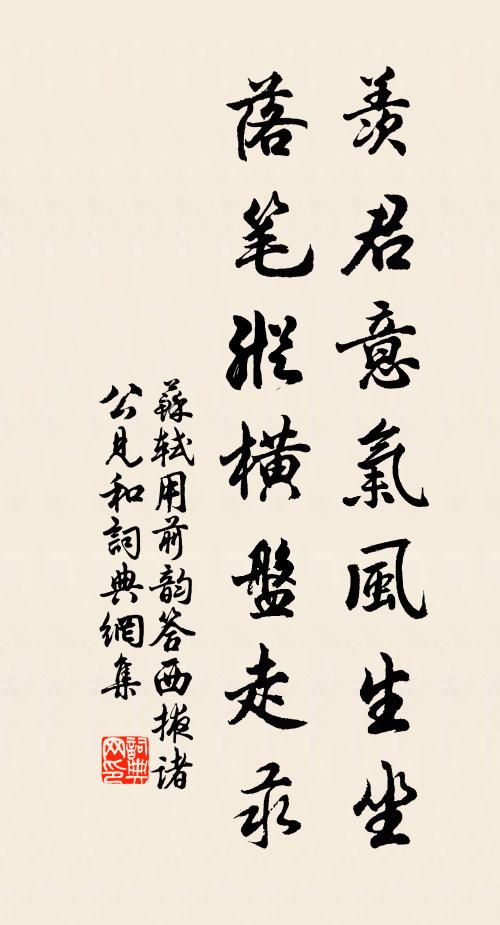 羨君意氣風生坐
落笔縱橫盤走汞
蘇軾用前韵答西掖諸
公見和詞典網集
詞典
网印